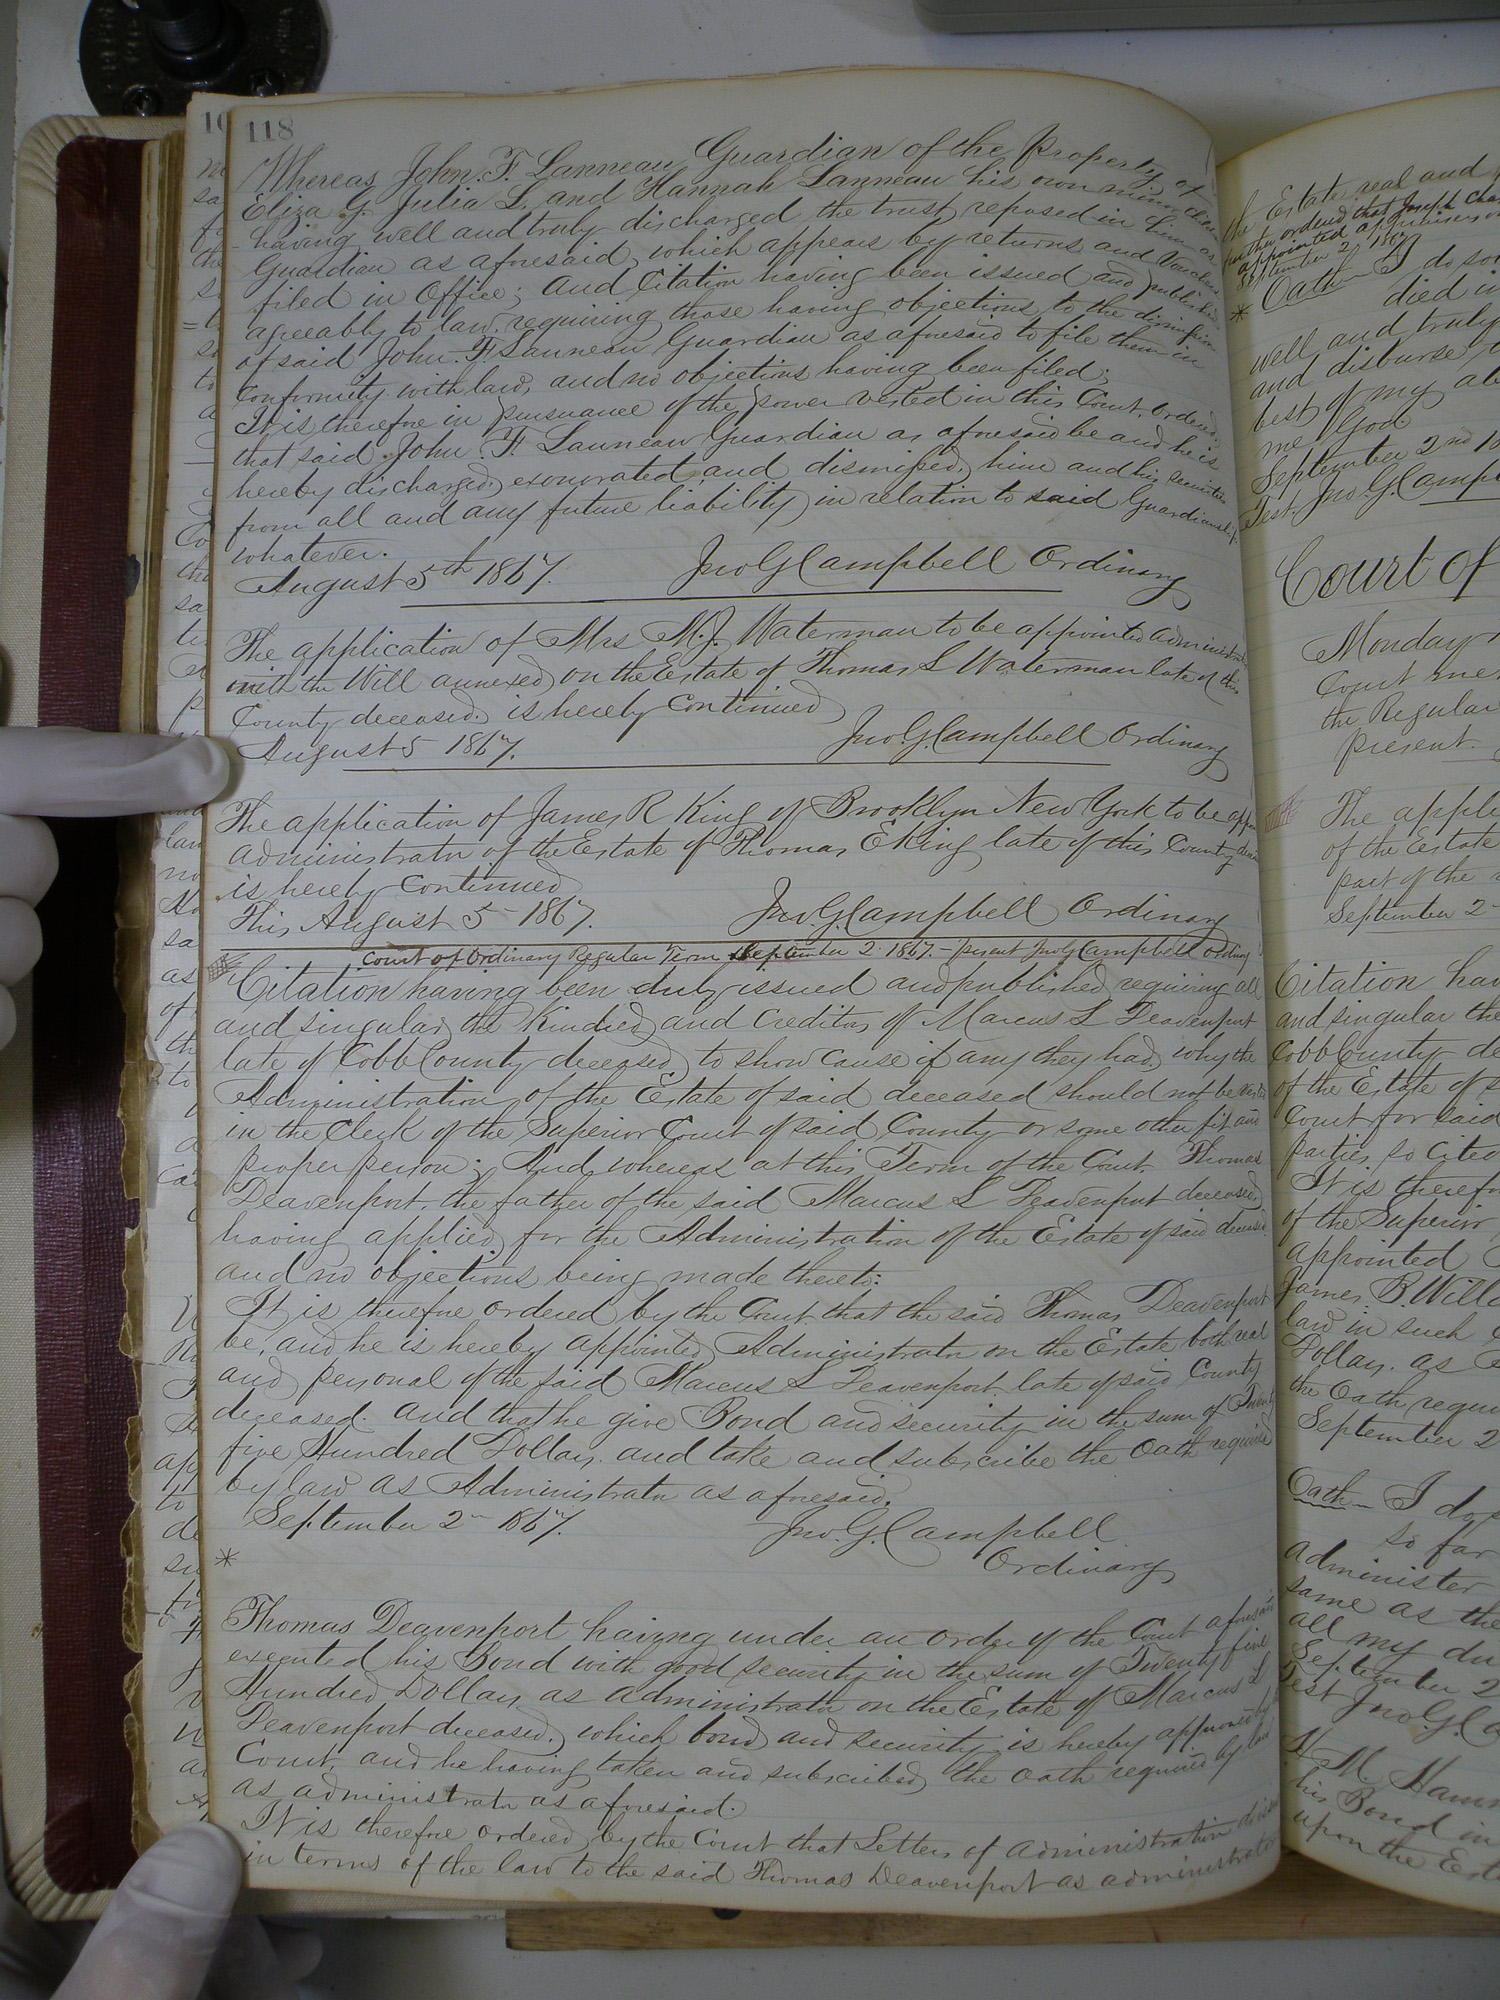 118
Whereas John. F. Lanneau Guardian of the Property of
Eliza G. Julia L. and Hannah Lanneau his own minor
having well and truly discharged the trust reposed in him as
Guardian as aforesaid, which appears by returns and Vouchers
filed in Office; and Citation having been issued and published
agreeably to law, requiring those having objections to the dismission
of said John. F. Lanneau Guardian as aforesaid to file them in
Conformity with law, and no objections having been filed;
It is therefore in pursuance of the power vested in this Court, Ordered,
that said John F. Lanneau Guardian as aforesaid be and he is
hereby discharged, exonorated and dismissed, him and his securities
from all and any future liability in relation to said Guardianship
whatever.
August 5th 1867. Jno G Campbell Ordinary
The application of Mrs M. J. Waterman to be appointed
with the Will annexed on the Estate of Thomas L Waterman late of this
County deceased, is hereby Continued
August 5 1867. Jno. G. Campbell Ordinary
The application of James R King of Brooklyn New York to be
administrator of the Estate of Thomas E King late of this County
is hereby Continued
This August 5 - 1867. Jno. G. Campbell Ordinary
Court of Ordinary Regular Term September 2 1867. - present Jno G Campbell Ordinary
Citation having been duly issued and published requiring all
and singular, the Kindred and Creditors of Marcus L Deavenport
late of Cobb County deceased, to show cause if any they had, why the
Administration of the Estate of said deceased should not be vested
in the Clerk of the Superior Court of said County or some other fit and
proper person; And whereas at this Term of the Court Thomas
Deavenport, the father of the said Marcus L Deavenport deceased
having applied for the Administration of the Estate of said deceased
and no objections being made thereto:
It is therefore ordered by the Court that the said Thomas Deavenport
be, and he is hereby appointed Administrator on the Estate both real
and personal of the said Marcus L Deavenport late of said County
deceased. and that he give Bond and security in the sum of Twenty
five Hundred Dollars, and take and subscribe the Oath required
by law as Administrator as aforesaid.
September 2 - 1867. Jno. G. Campbell
Ordinary
*
Thomas Deavenport having under an order of the Court aforesaid
executed his Bond with good security in the sum of Twenty five
Hundred Dollars as administrator on the Estate of Marcus L
Deavenport deceased, which bond and security is hereby approved by
Court, and he having taken and subscribed the oath required by law
as administrator as aforesaid.
It is therefore ordered by the Court that Letters of administration do
in terms of the law to the said Thomas Deavenport as administrator
the Estate real and
ordered that Joseph
appointed appraisers
September 2, 1867
* Oath I do
died
well and truly
and disburse
best of my
me God
September 2nd
Test. Jno. G. Campbell
Court of
Monday
Court
the Regular
present.
The
of the Estate
part of the
September 2
Citation
and singular the
Cobb County
of the Estate of
Court for said
parties so cited
It is
of the Superior
appointed
James B.
law in such
Dollars, as
the Oath
September 2
Oath I do
so far
administer
same as the
all my
September 2
Test Jno. G.
M.
his Bond in
upon the